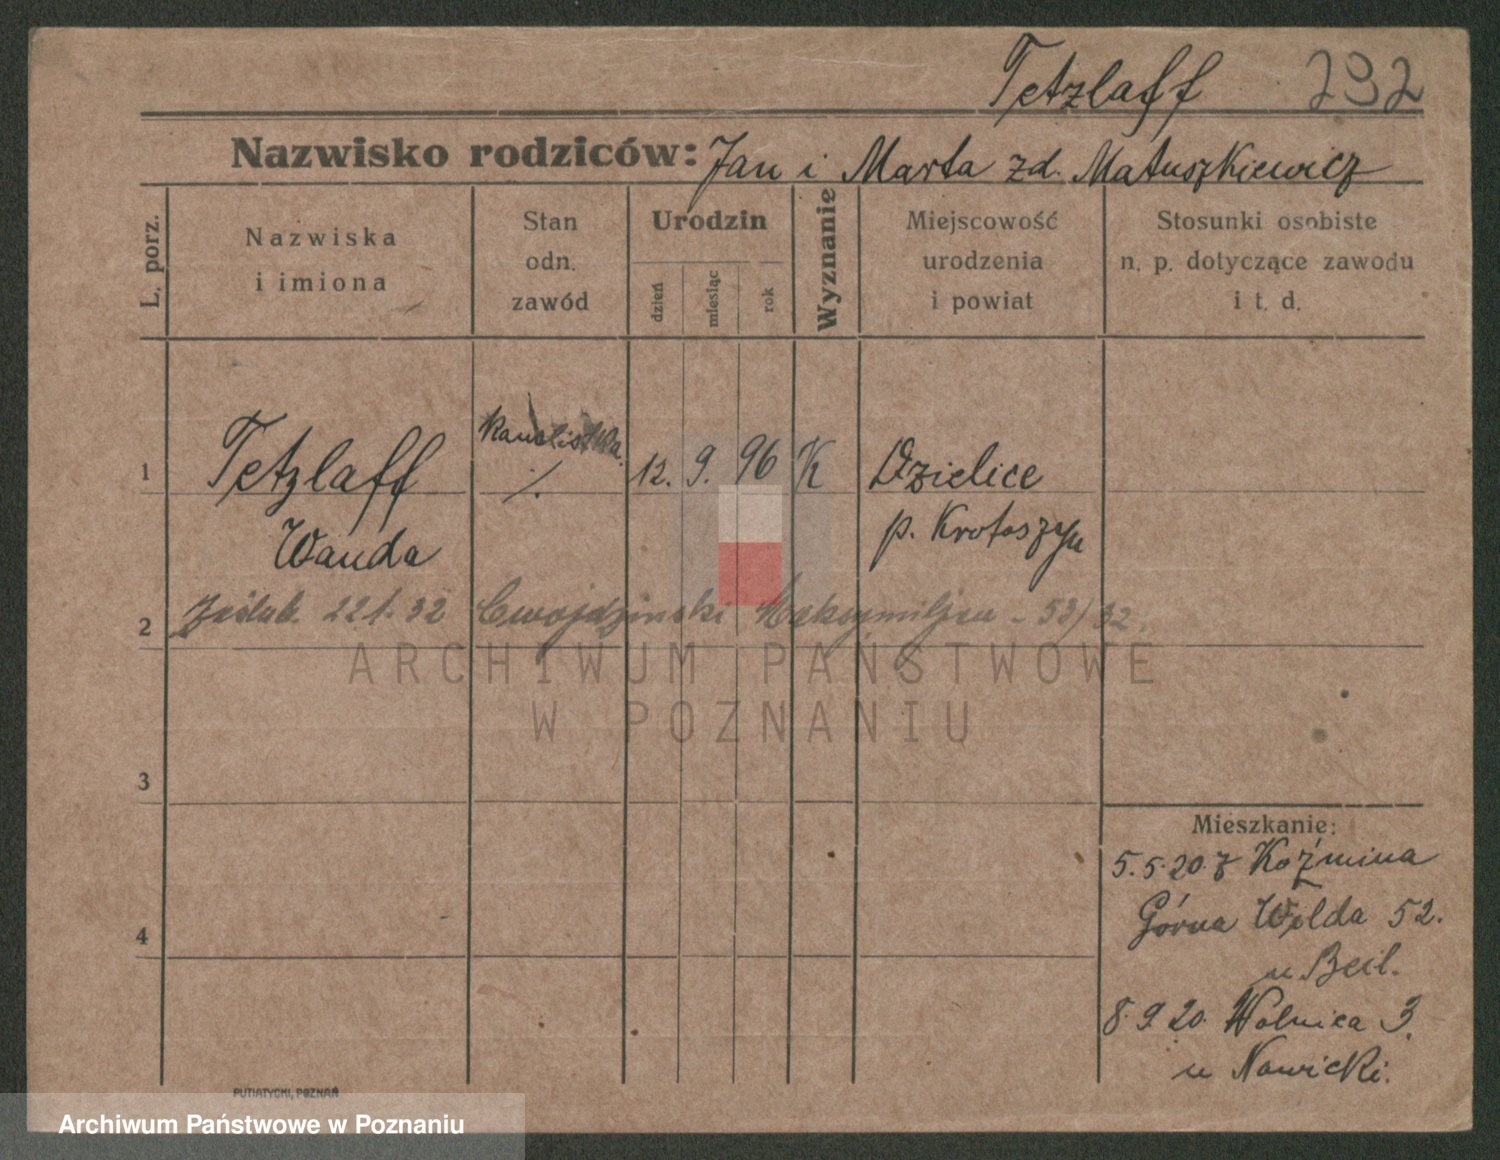 Tetzlaff 292
Nazwisko rodziców: Jan i Marta zd. Matuszkiewicz
L. porz.
Nazwiska
i imiona
Stan
odn.
zawód
Urodzin
dzień
miesiąc
rok
Wyznanie
Miejscowość
urodzenia
i powiat
Stosunki osobiste
n. p. dotyczące zawodu
i t. d.
1 Tetzlaff 12. 9. 96 K Dzielice
Wanda p. Krotoszyn
2 Zaślub. 22.1.32 Cwojdziński Maksymiljan - 53/32.
3
4
Mieszkanie:
5.5.20 z Koźmina
Górna Wilda 52.
u Beil.
8.9.20. Wolnica 3.
u Nawicki.
PUTIATYCKI, POZNAŃ
ARCHIWUM PAŃSTWOWE
W POZNANIU
Archiwum Państwowe w Poznaniu